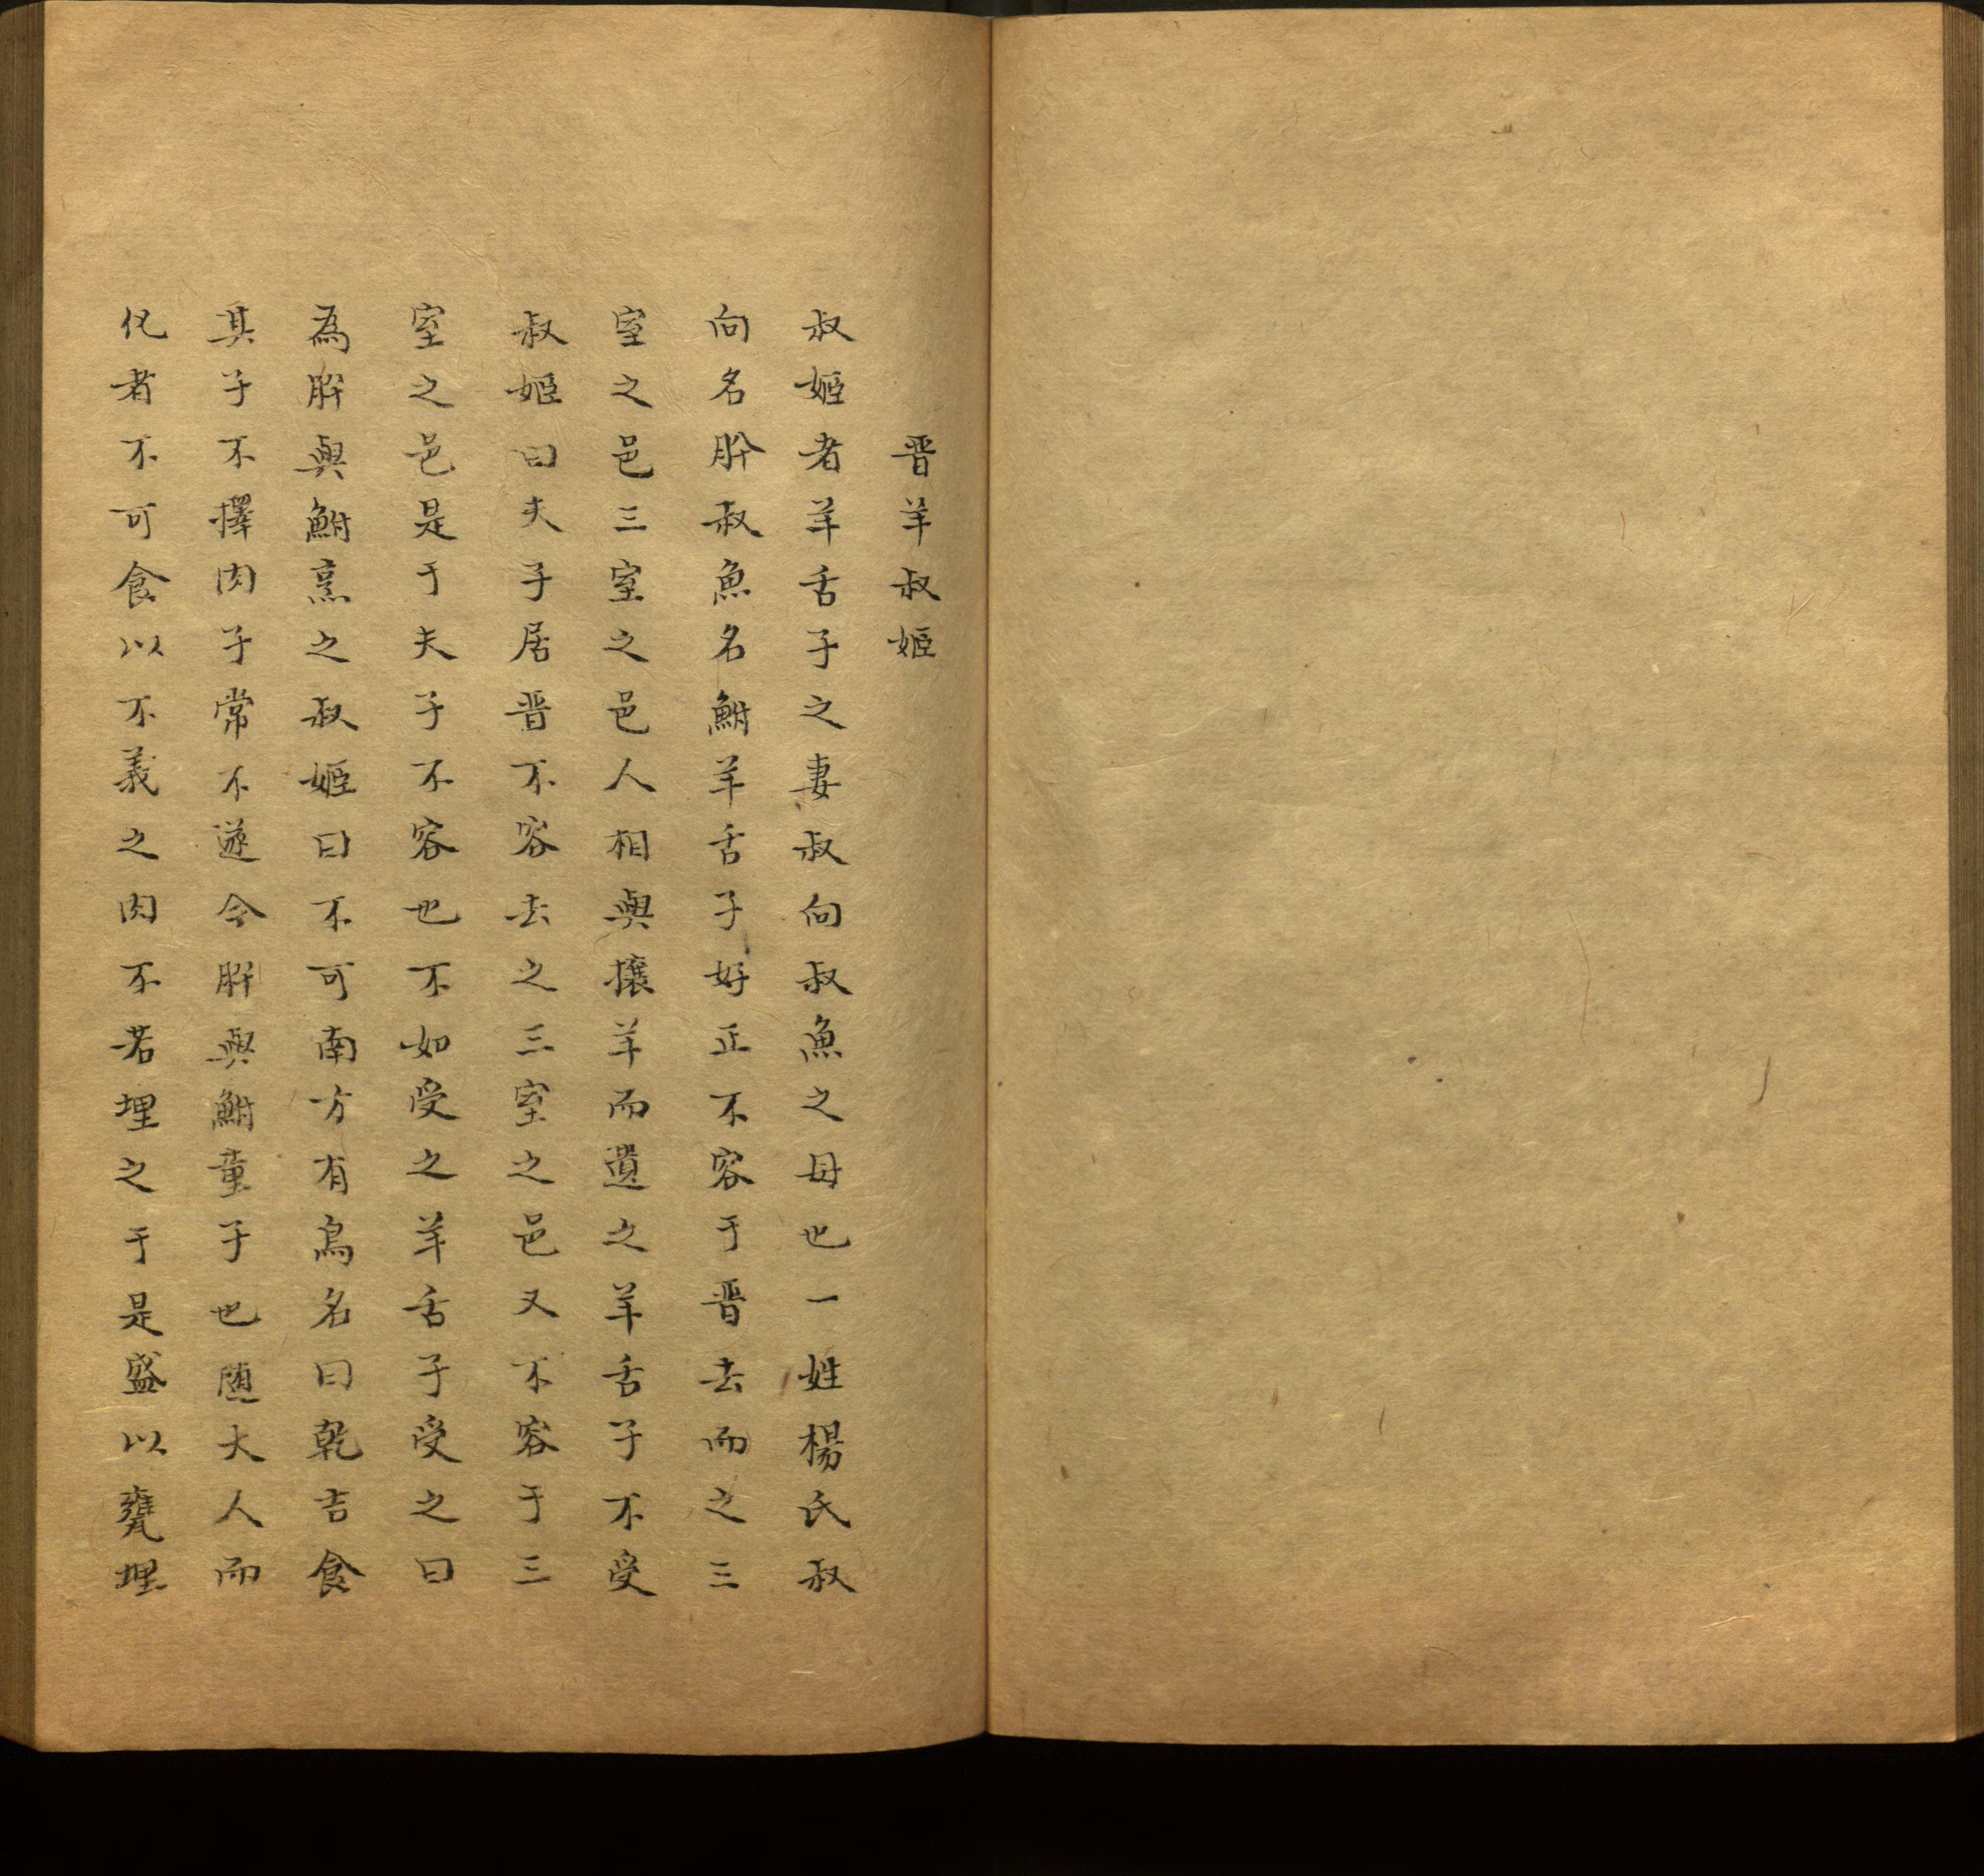 晋羊叔姬
叔姬者羊舌子之妻叔向叔魚之母也一姓楊氏叔
向名肸叔魚名鮒羊舌子好正不容于晋去而之三
室之邑三室之邑人相與攘羊而遺之羊舌子不受
叔姬曰夫子居晋不容去之三室之邑又不容于三
室之邑是于夫子不容也不如受之羊舌子受之曰
為肸與鮒烹之叔姬曰不可南方有鳥名曰乾吉食
其子不擇肉子常不遂今肸與鮒童子也随大人而
化者不可食以不義之肉不若埋之于是盛以甕埋